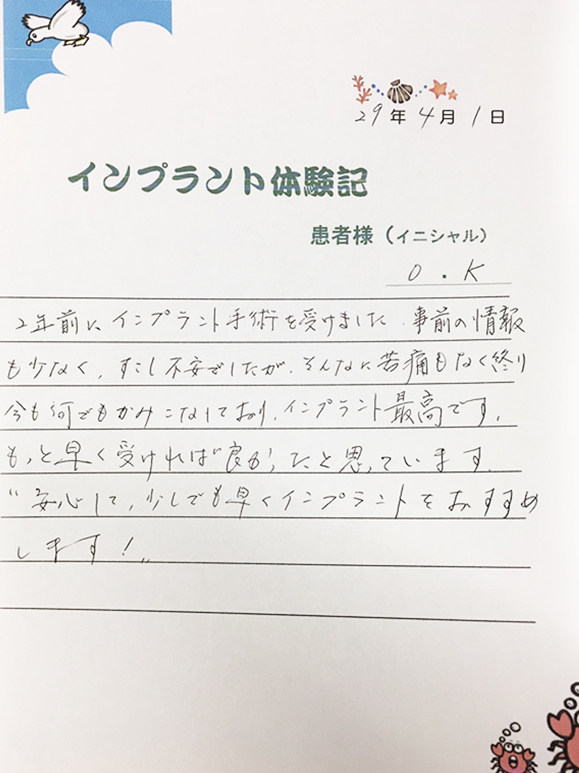 29年4月1日
インプラント体験記
患者様（イニシャル）
O.K
2年前にインプラント手術を受けました 事前の情報
も少なく、すこし不安でしたが、そんなに苦痛もなく終り
今も何でもかみこなしており、インプラント最高です。
もっと早く受ければ良かったと思っています。
“安心して、少しでも早くインプラントをおすすめ
します！”